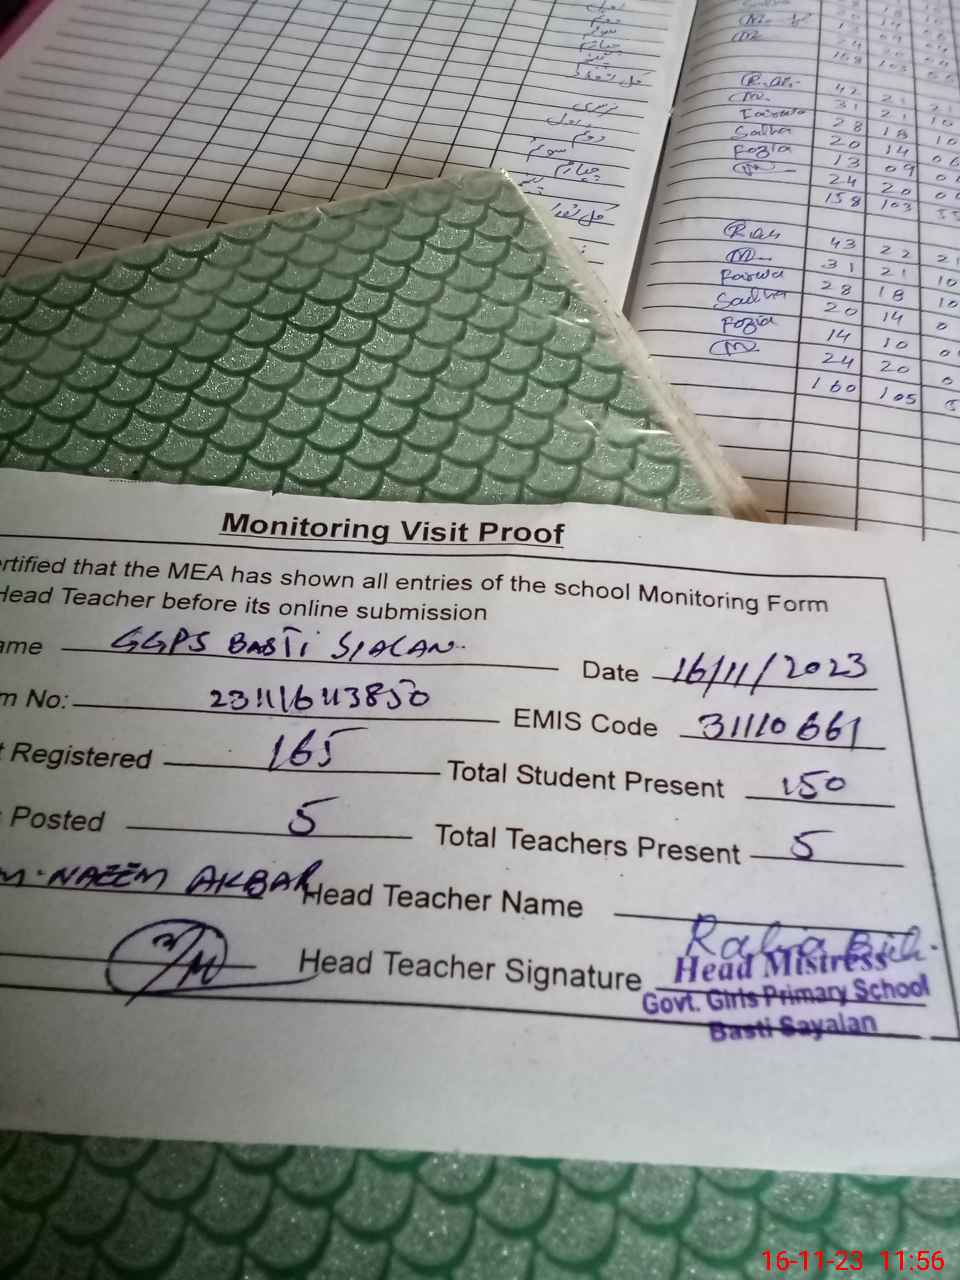 نرسری
اول
دوم
سوم
چہارم
کل تعداد
42 21 21
31 21 10
Farwa 28 18 10
Sadia 20 14 06
Fozia 13 09
24 20
158 103 55
43 22 21
31 21 10
Farwa 28 18 10
Sadia 20 14
Fozia 14 10
24 20
160 105
Monitoring Visit Proof
rtified that the MEA has shown all entries of the school Monitoring Form
Head Teacher before its online submission
ame GGPS BASTI SIALAN Date 16/11/2023
m No: 23111643850 EMIS Code 31110661
t Registered 165 Total Student Present 150
Posted 5 Total Teachers Present 5
M. NAEEM AKBAR Head Teacher Name
Head Teacher Signature Rabia Bibi
Head Mistress
Govt. Girls Primary School
Basti Sayalan
16-11-23 11:56